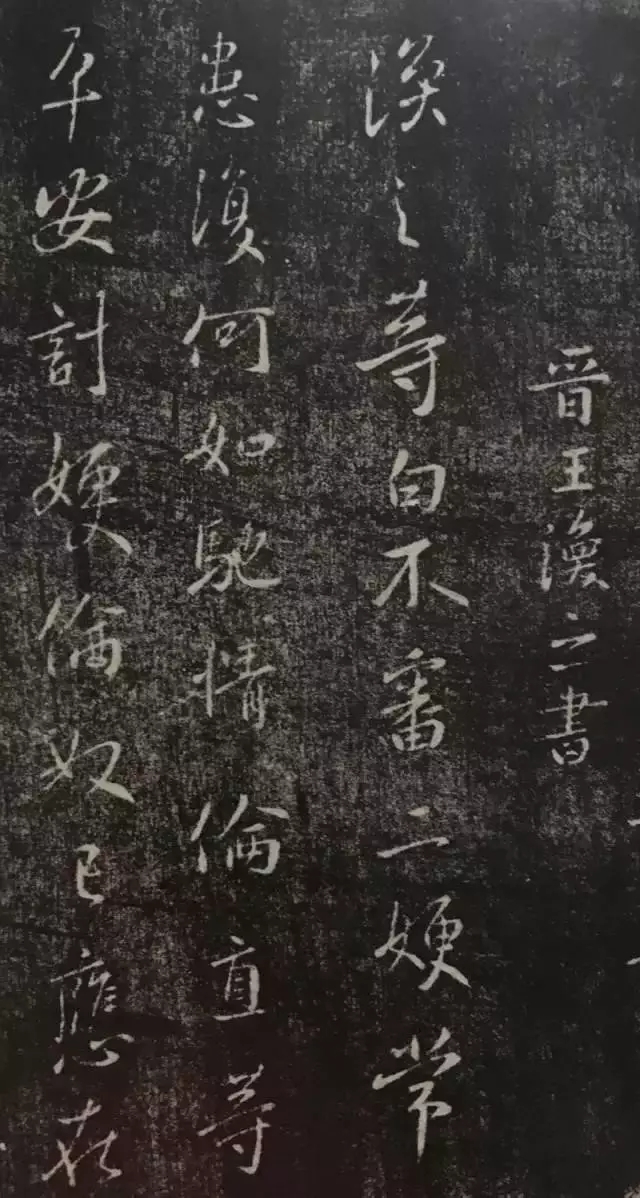 晉王渙之書
渙之等白不審二嫂常
患復何如馳情倫直等
平安計嫂倫奴已應在